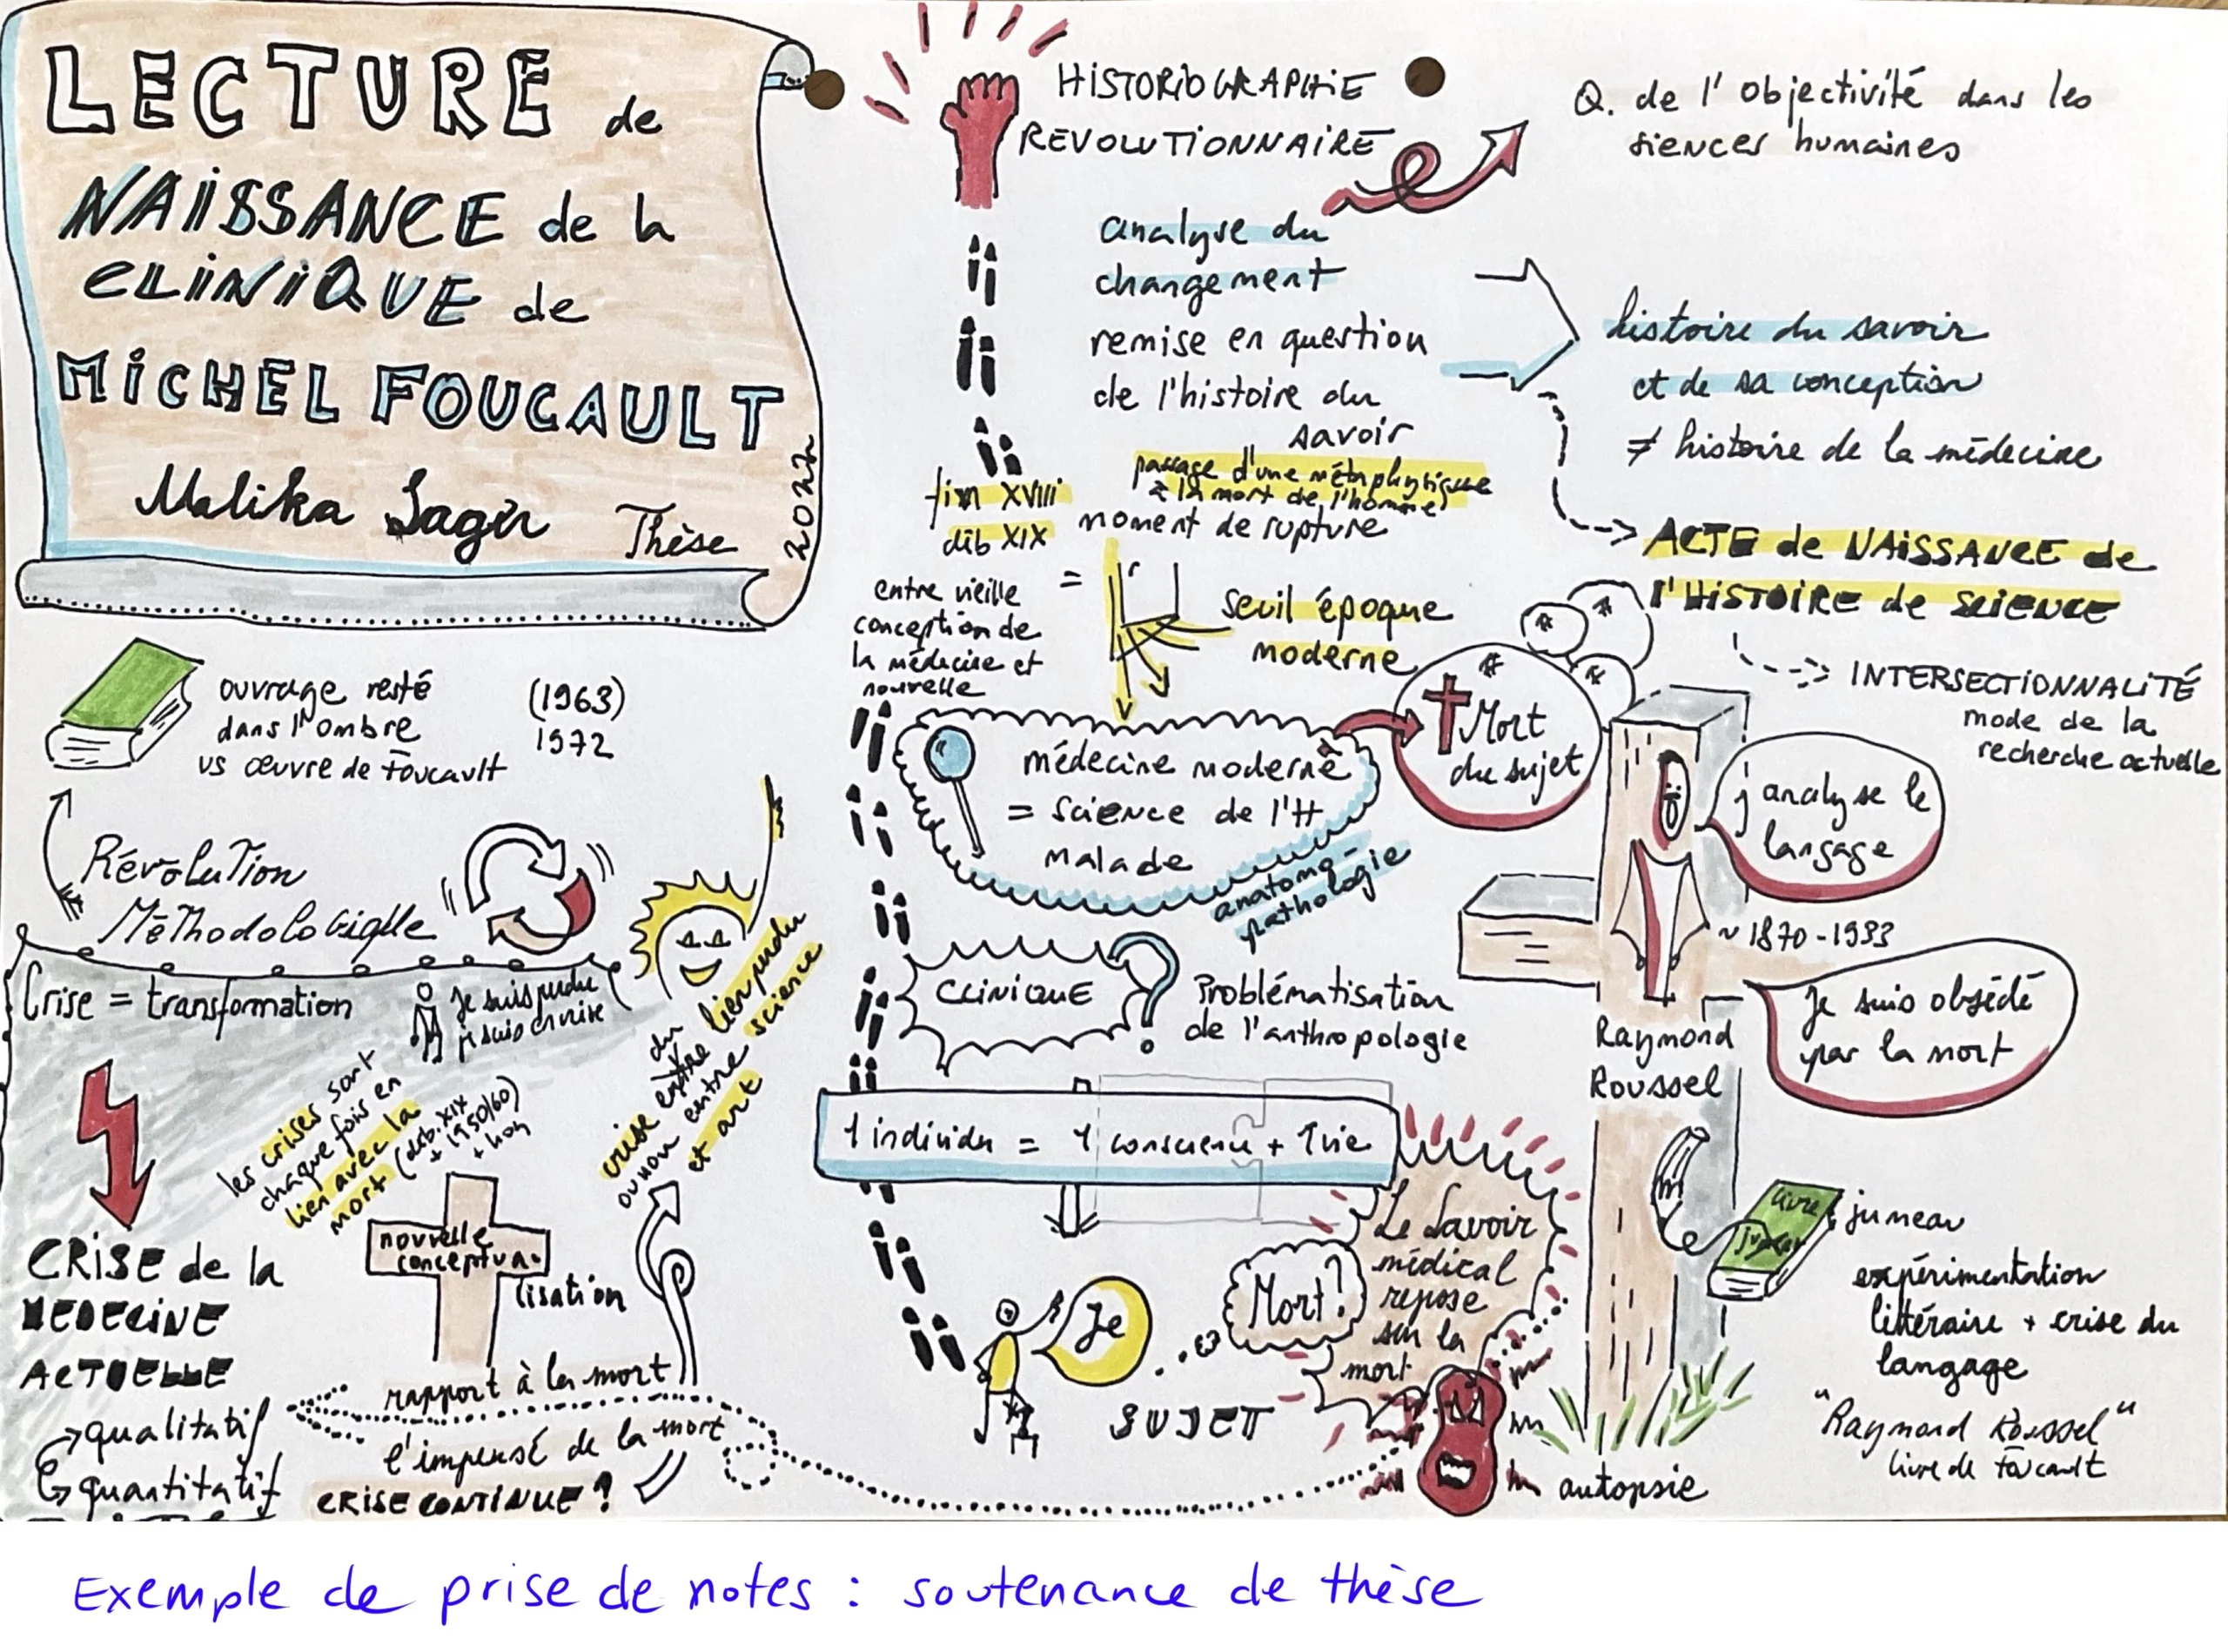 LECTURE de
NAISSANCE de la
CLINIQUE de
MICHEL FOUCAULT
Malika Sager Thèse
2022
ouvrage resté
dans l'ombre
vs œuvre de Foucault
(1963)
1972
Révolution
Méthodologique
Crise = transformation
je suis perdu
je suis en crise
les crises sont
chaque fois en
lien avec la
mort (déb. XIX
+ 1950/60)
CRISE de la
MEDECINE
ACTUELLE
qualitatif
quantitatif
nouvelle
conceptua-
lisation
rapport à la mort
l'impensé de la mort
CRISE CONTINUE ?
crise entre du lien perdu
ou non entre science
et art
HISTORIOGRAPHIE
REVOLUTIONNAIRE
analyse du
changement
remise en question
de l'histoire du
savoir
passage d'une métaphysique
à la mort de l'homme
fin XVIII
déb XIX
moment de rupture
entre vieille
conception de
la médecine et
nouvelle
=
seuil époque
moderne
médecine moderne
= science de l'H
malade
anatomo-
pathologie
Mort
du sujet
CLINIQUE ?
Problématisation
de l'anthropologie
1 individu = 1 conscience + 1 vie
Je
Mort?
SUJET
Le Savoir
médical
repose
sur la
mort
autopsie
Q. de l'objectivité dans les
siences humaines
histoire du savoir
et de sa conception
≠ histoire de la médecine
ACTE de NAISSANCE de
l'HISTOIRE de SCIENCE
INTERSECTIONNALITÉ
mode de la
recherche actuelle
j'analyse le
langage
~ 1870-1933
Je suis obsédé
par la mort
Raymond
Roussel
livre
jumeau
jumeau
expérimentation
littéraire + crise du
langage
"Raymond Roussel"
livre de Foucault
Exemple de prise de notes : soutenance de thèse